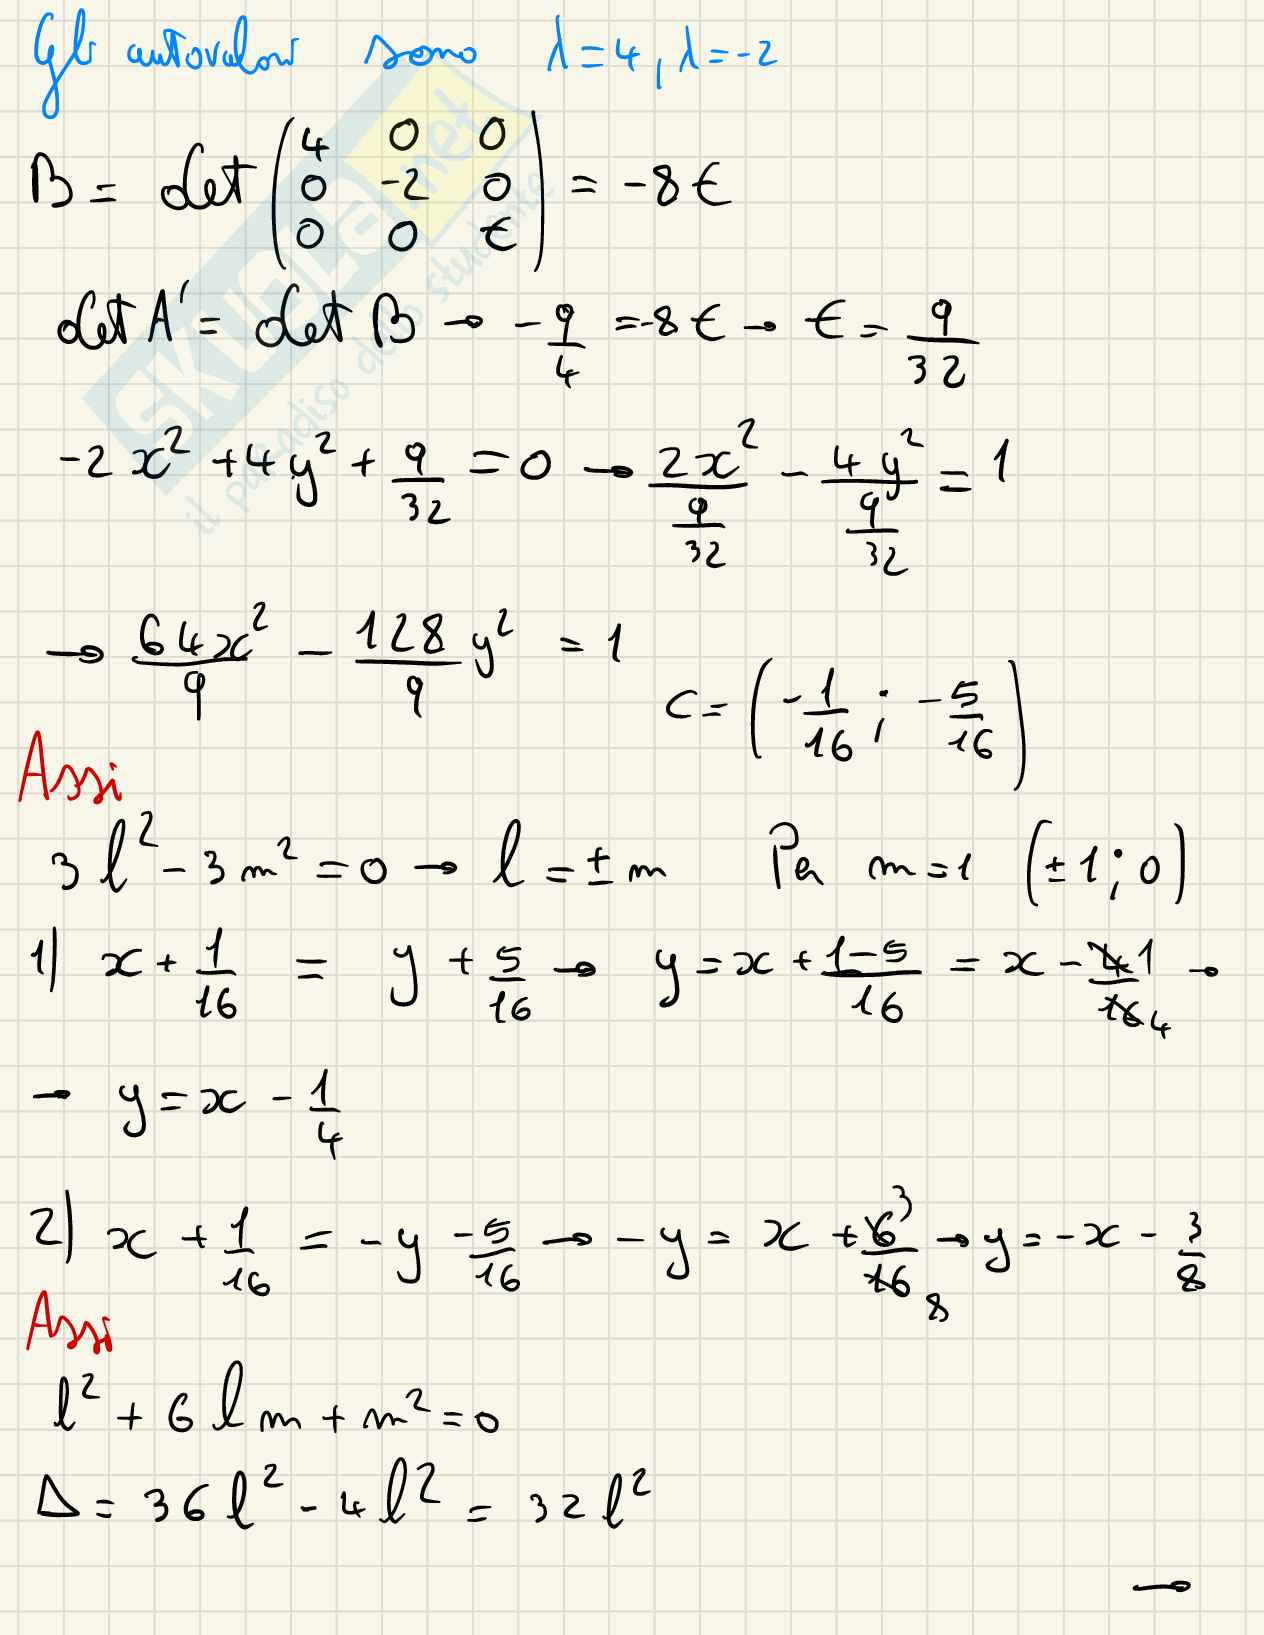 Gli autovalori sono λ=4, λ=-2
B = det (4 0 0 / 0 -2 0 / 0 0 t) = -8t
det A' = det B → -9/4 = -8t → t = 9/32
-2x² + 4y² + 9/32 = 0 → 2x²/(9/32) - 4y²/(9/32) = 1
→ 64x²/9 - 128/9 y² = 1
C = (-1/16 ; -5/16)
Assi
3l² - 3m² = 0 → l = ±m Per m=1 (±1; 0)
1) x + 1/16 = y + 5/16 → y = x + (1-5)/16 = x - 4/16 1/4 →
→ y = x - 1/4
2) x + 1/16 = -y - 5/16 → -y = x + 6/16 3/8 → y = -x - 3/8
Assi
l² + 6lm + m² = 0
Δ = 36l² - 4l² = 32l²
→
SKUOLA.net
il paradiso dello studente